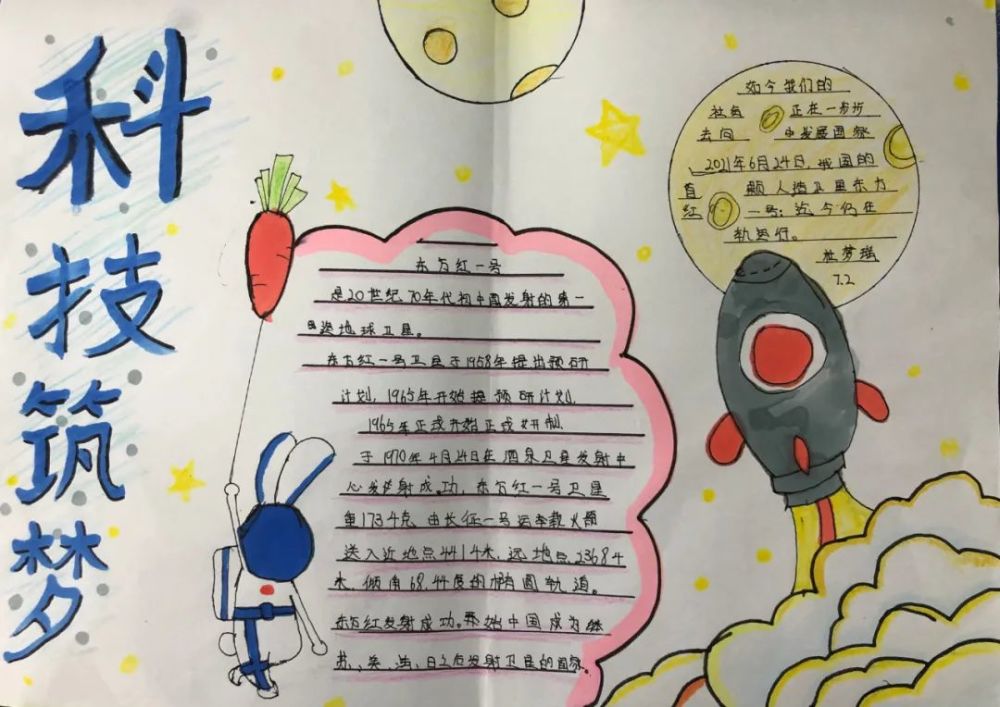 科技筑梦
东方红一号
是20世纪70年代初中国发射的第一
地球卫星。
东方红一号卫星于1958年提出预研
计划,1965年开始提预研计划,
1965年正式开始正式研制
于1970年4月24日在酒泉卫星发射中
心发射成功,东方红一号卫星
重1734克由长征一号运载火箭
送入近地点4414米,远地点23684
米,倾角68.44度的椭圆轨道。
东方红发射成功。中国成为
苏、美、法、日之后发射卫星的国家。
如今我们的
社会正在一步步
去向中发展国家
2021年6月24日,我国的
首颗人造卫星东方
红一号:迄今仍在
轨运行。
杜梦瑶
7.2